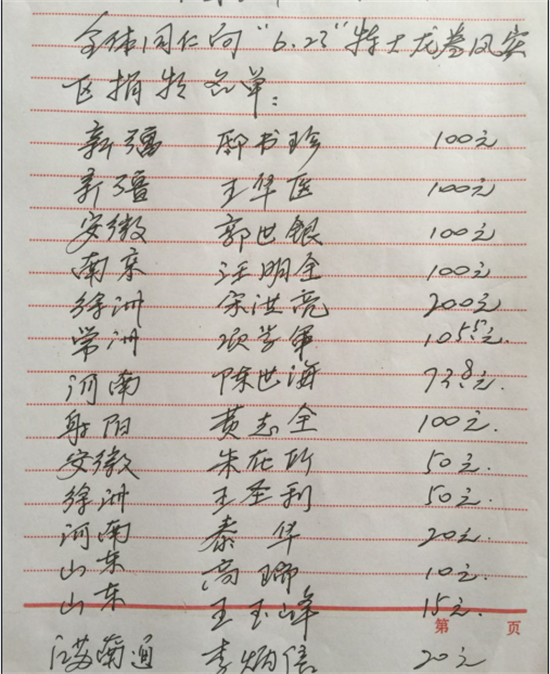 全体同仁向“6.23”特大龙卷风灾
区捐款名单:
新疆 邸书珍 100元
新疆 王华医 100元
安徽 郭世银 100元
南京 汪明全 100元
徐洲 宋洪亮 200元
常洲 项学军 105.5元.
河南 陈世海 73.8元.
射阳 黄志全 100元.
安徽 朱在所 50元.
徐洲 王圣利 50元.
河南 秦华 20元.
山东 高瑞 10元.
山东 王玉峰 15元.
第 页
江苏南通 李炳信 20元